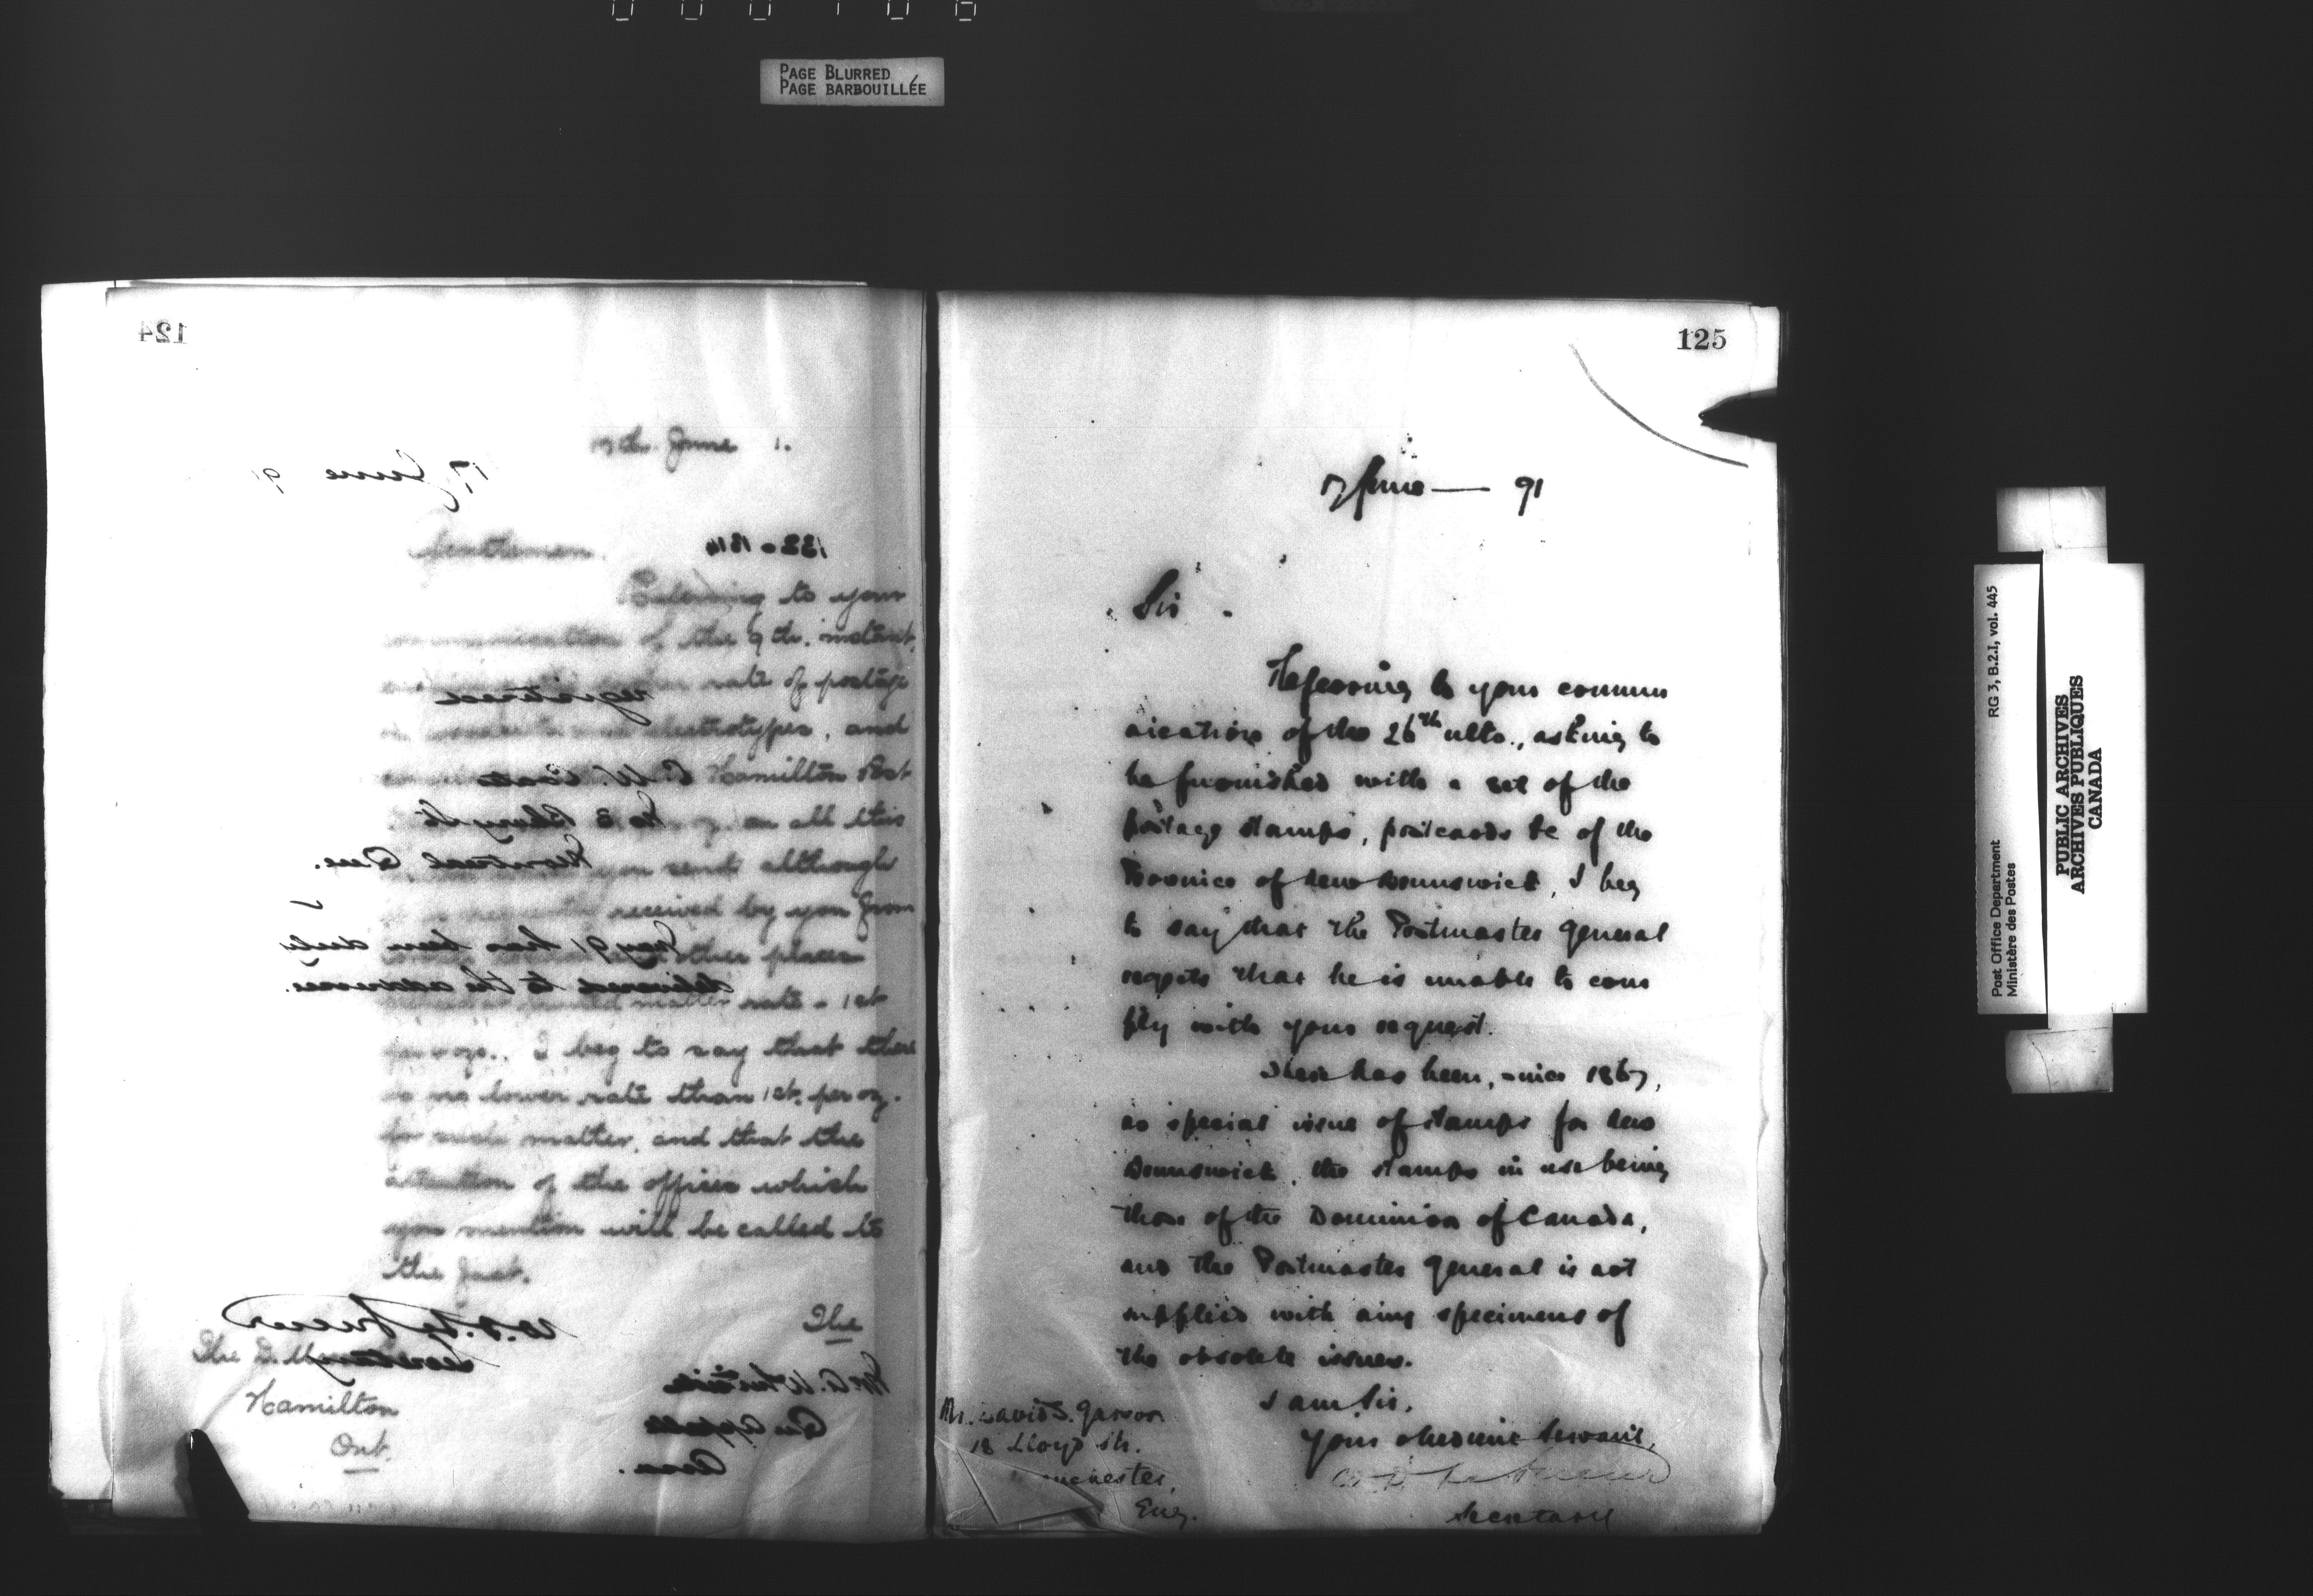 PAGE BLURRED
PAGE BARBOUILLÉE
124
17th June 1.
17 June 91
Gentlemen.
132-1814
Referring to your
communication of the 9th. instant,
rate of postage
registered
electrotypes, and
Hamilton Post
on all this
you send although
Montreal Que.
received by you from
May 91 has been duly
other places
delivered to the addressee.
printed matter rate - 1ct
per oz., I beg to say that there
is no lower rate than 1ct. per oz.
for such matter, and that the
attention of the offices which
you mention will be called to
the fact.
W. D. LeSueur
Secretary
The
The D.
Hamilton
Ont.
Qu'Appelle
Assa.
125
17 June — 91
Sir
Referring to your commu
nication of the 26th ulto., asking to
be furnished with a set of the
postage stamps, postcards &c of the
Province of New Brunswick, I beg
to say that the Postmaster General
regrets that he is unable to com
ply with your request.
There has been, since 1867,
no special issue of stamps for New
Brunswick, the stamps in use being
those of the Dominion of Canada,
and the Postmaster General is not
supplied with any specimens of
the obsolete issues.
I am Sir,
Your obedient Servant,
W D LeSueur
Secretary
Mr. David S. Garson
18 Lloyd St.
Manchester,
Eng.
Post Office Department
Ministère des Postes
RG 3, B.2.I, vol. 445
PUBLIC ARCHIVES
ARCHIVES PUBLIQUES
CANADA